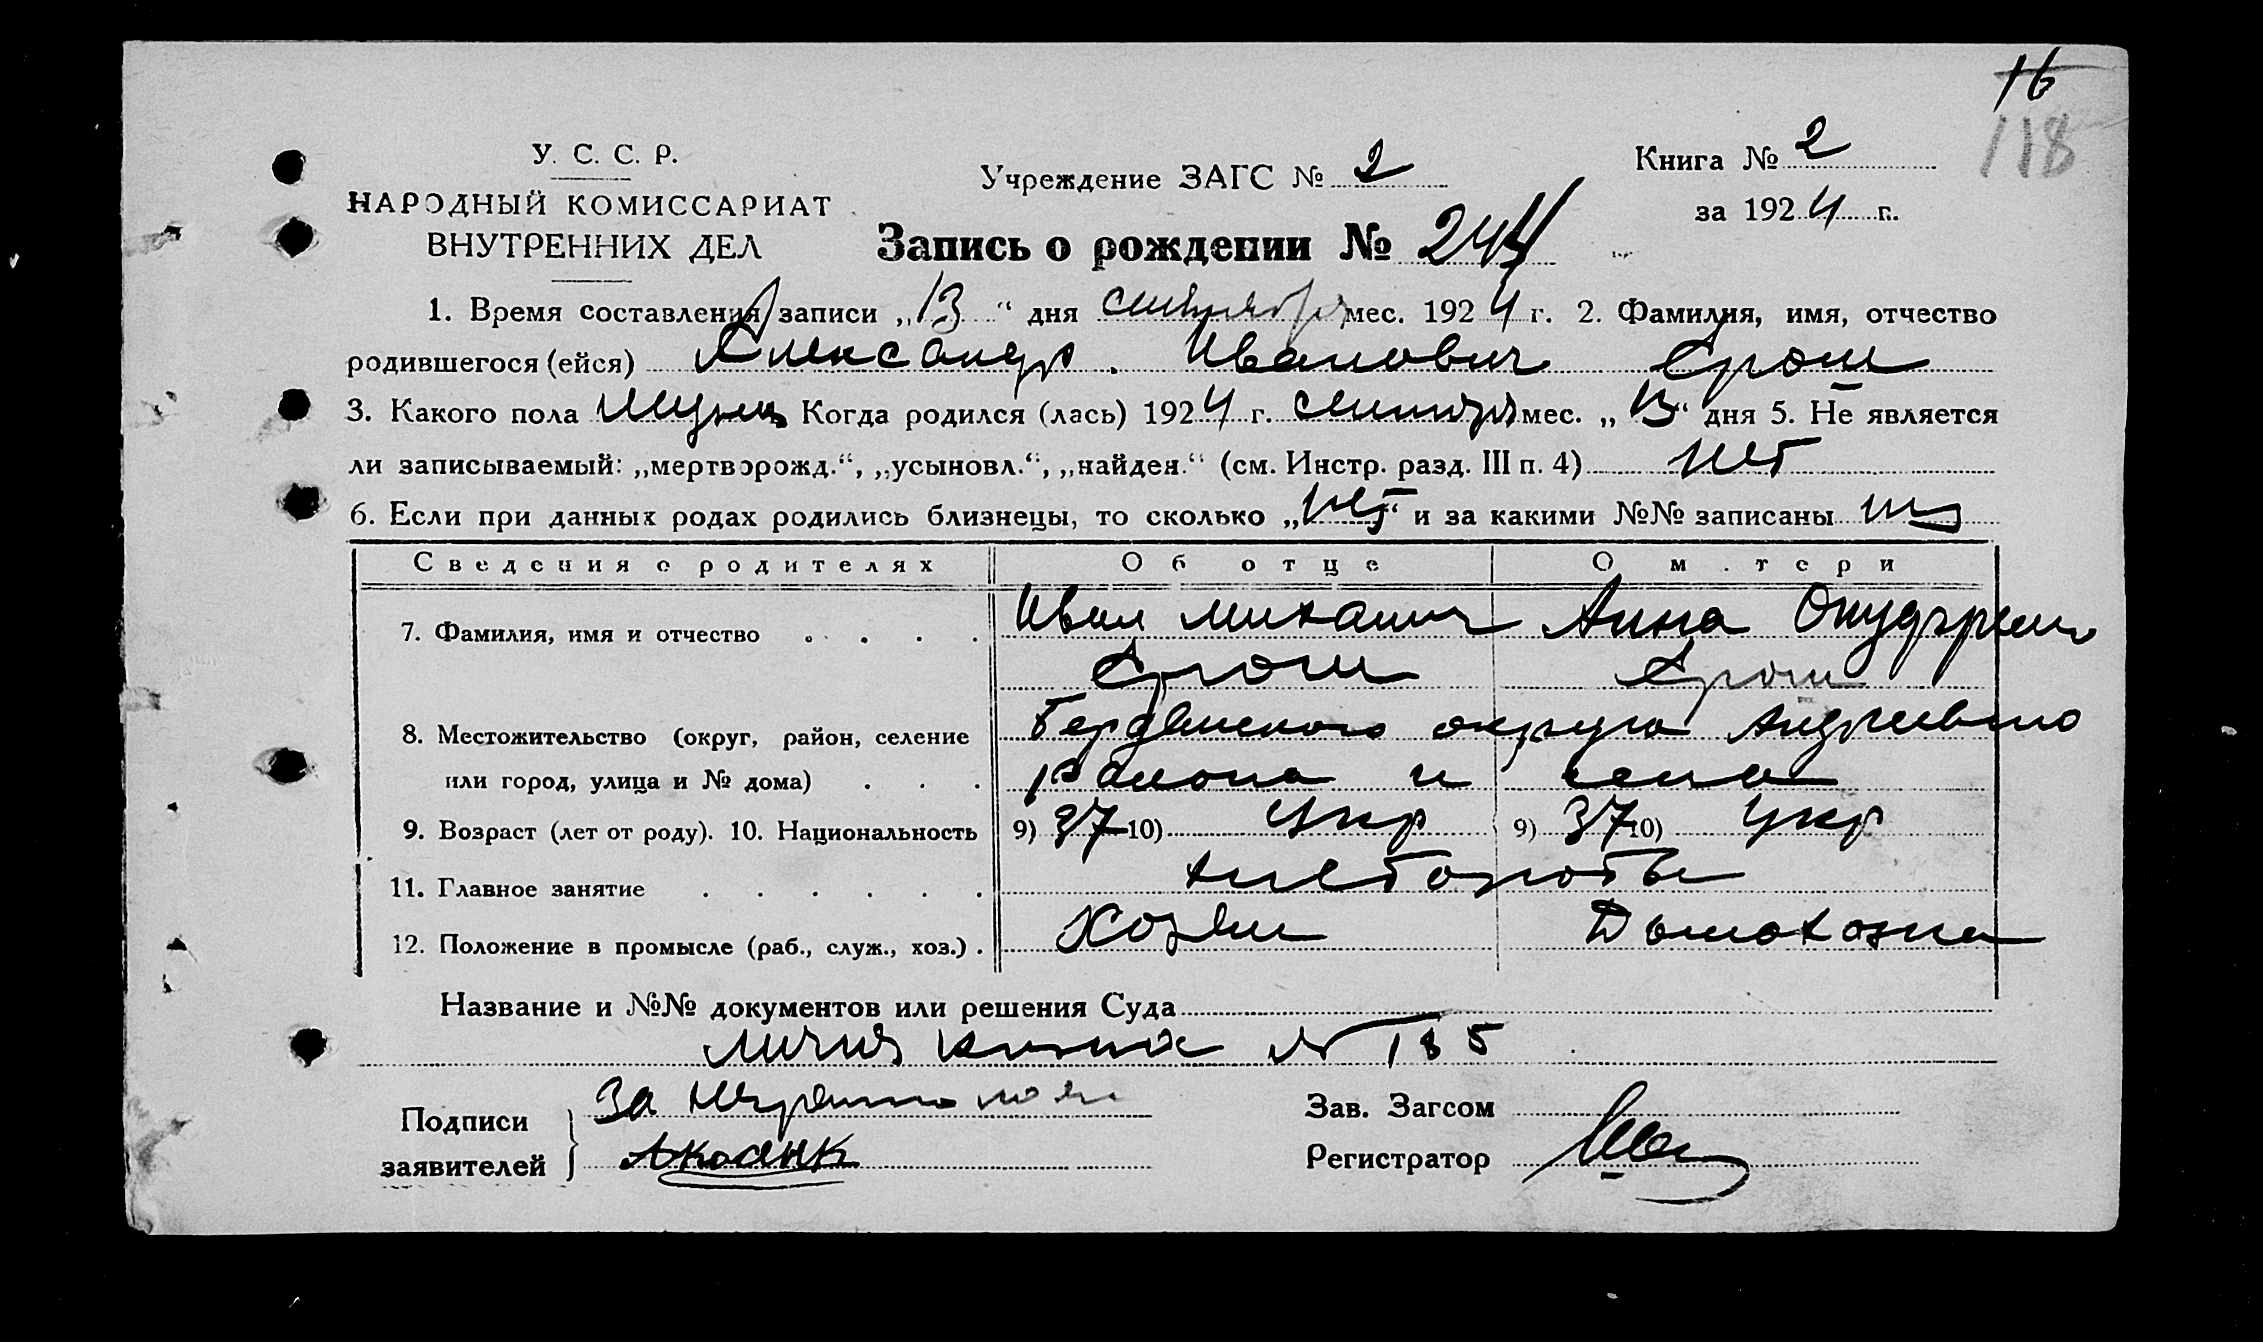 16
118
У. С. С. Р.
НАРОДНЫЙ КОМИССАРИАТ
ВНУТРЕННИХ ДЕЛ
Учреждение ЗАГС № 2
Книга № 2
за 1924 г.
Запись о рождении № 244
1. Время составления записи „13“ дня сентября мес. 1924 г. 2. Фамилия, имя, отчество
родившегося (ейся) Александр Иванович Ерош
3. Какого пола Мужск Когда родился (лась) 1924 г. сентября мес. „13“ дня 5. Не является
ли записываемый: „мертворожд.“, „усыновл.“, „найден.“ (см. Инстр. разд. III п. 4) нет
6. Если при данных родах родились близнецы, то сколько „нет“ и за какими №№ записаны
Сведения о родителях Об отце О м.тери
7. Фамилия, имя и отчество Иван Михайлич Анна
Ерош Ерош
8. Местожительство (округ, район, селение Бердянского округа Андреевского
или город, улица и № дома) района и села
9. Возраст (лет от роду). 10. Национальность 9) 37 10) Укр 9) 37 10) Укр
11. Главное занятие хлебороб
12. Положение в промысле (раб., служ., хоз.) Хозяин Домохозяйка
Название и №№ документов или решения Суда
личная книжка № 185
Подписи заявителей } За неграмотного
Зав. Загсом
Регистратор